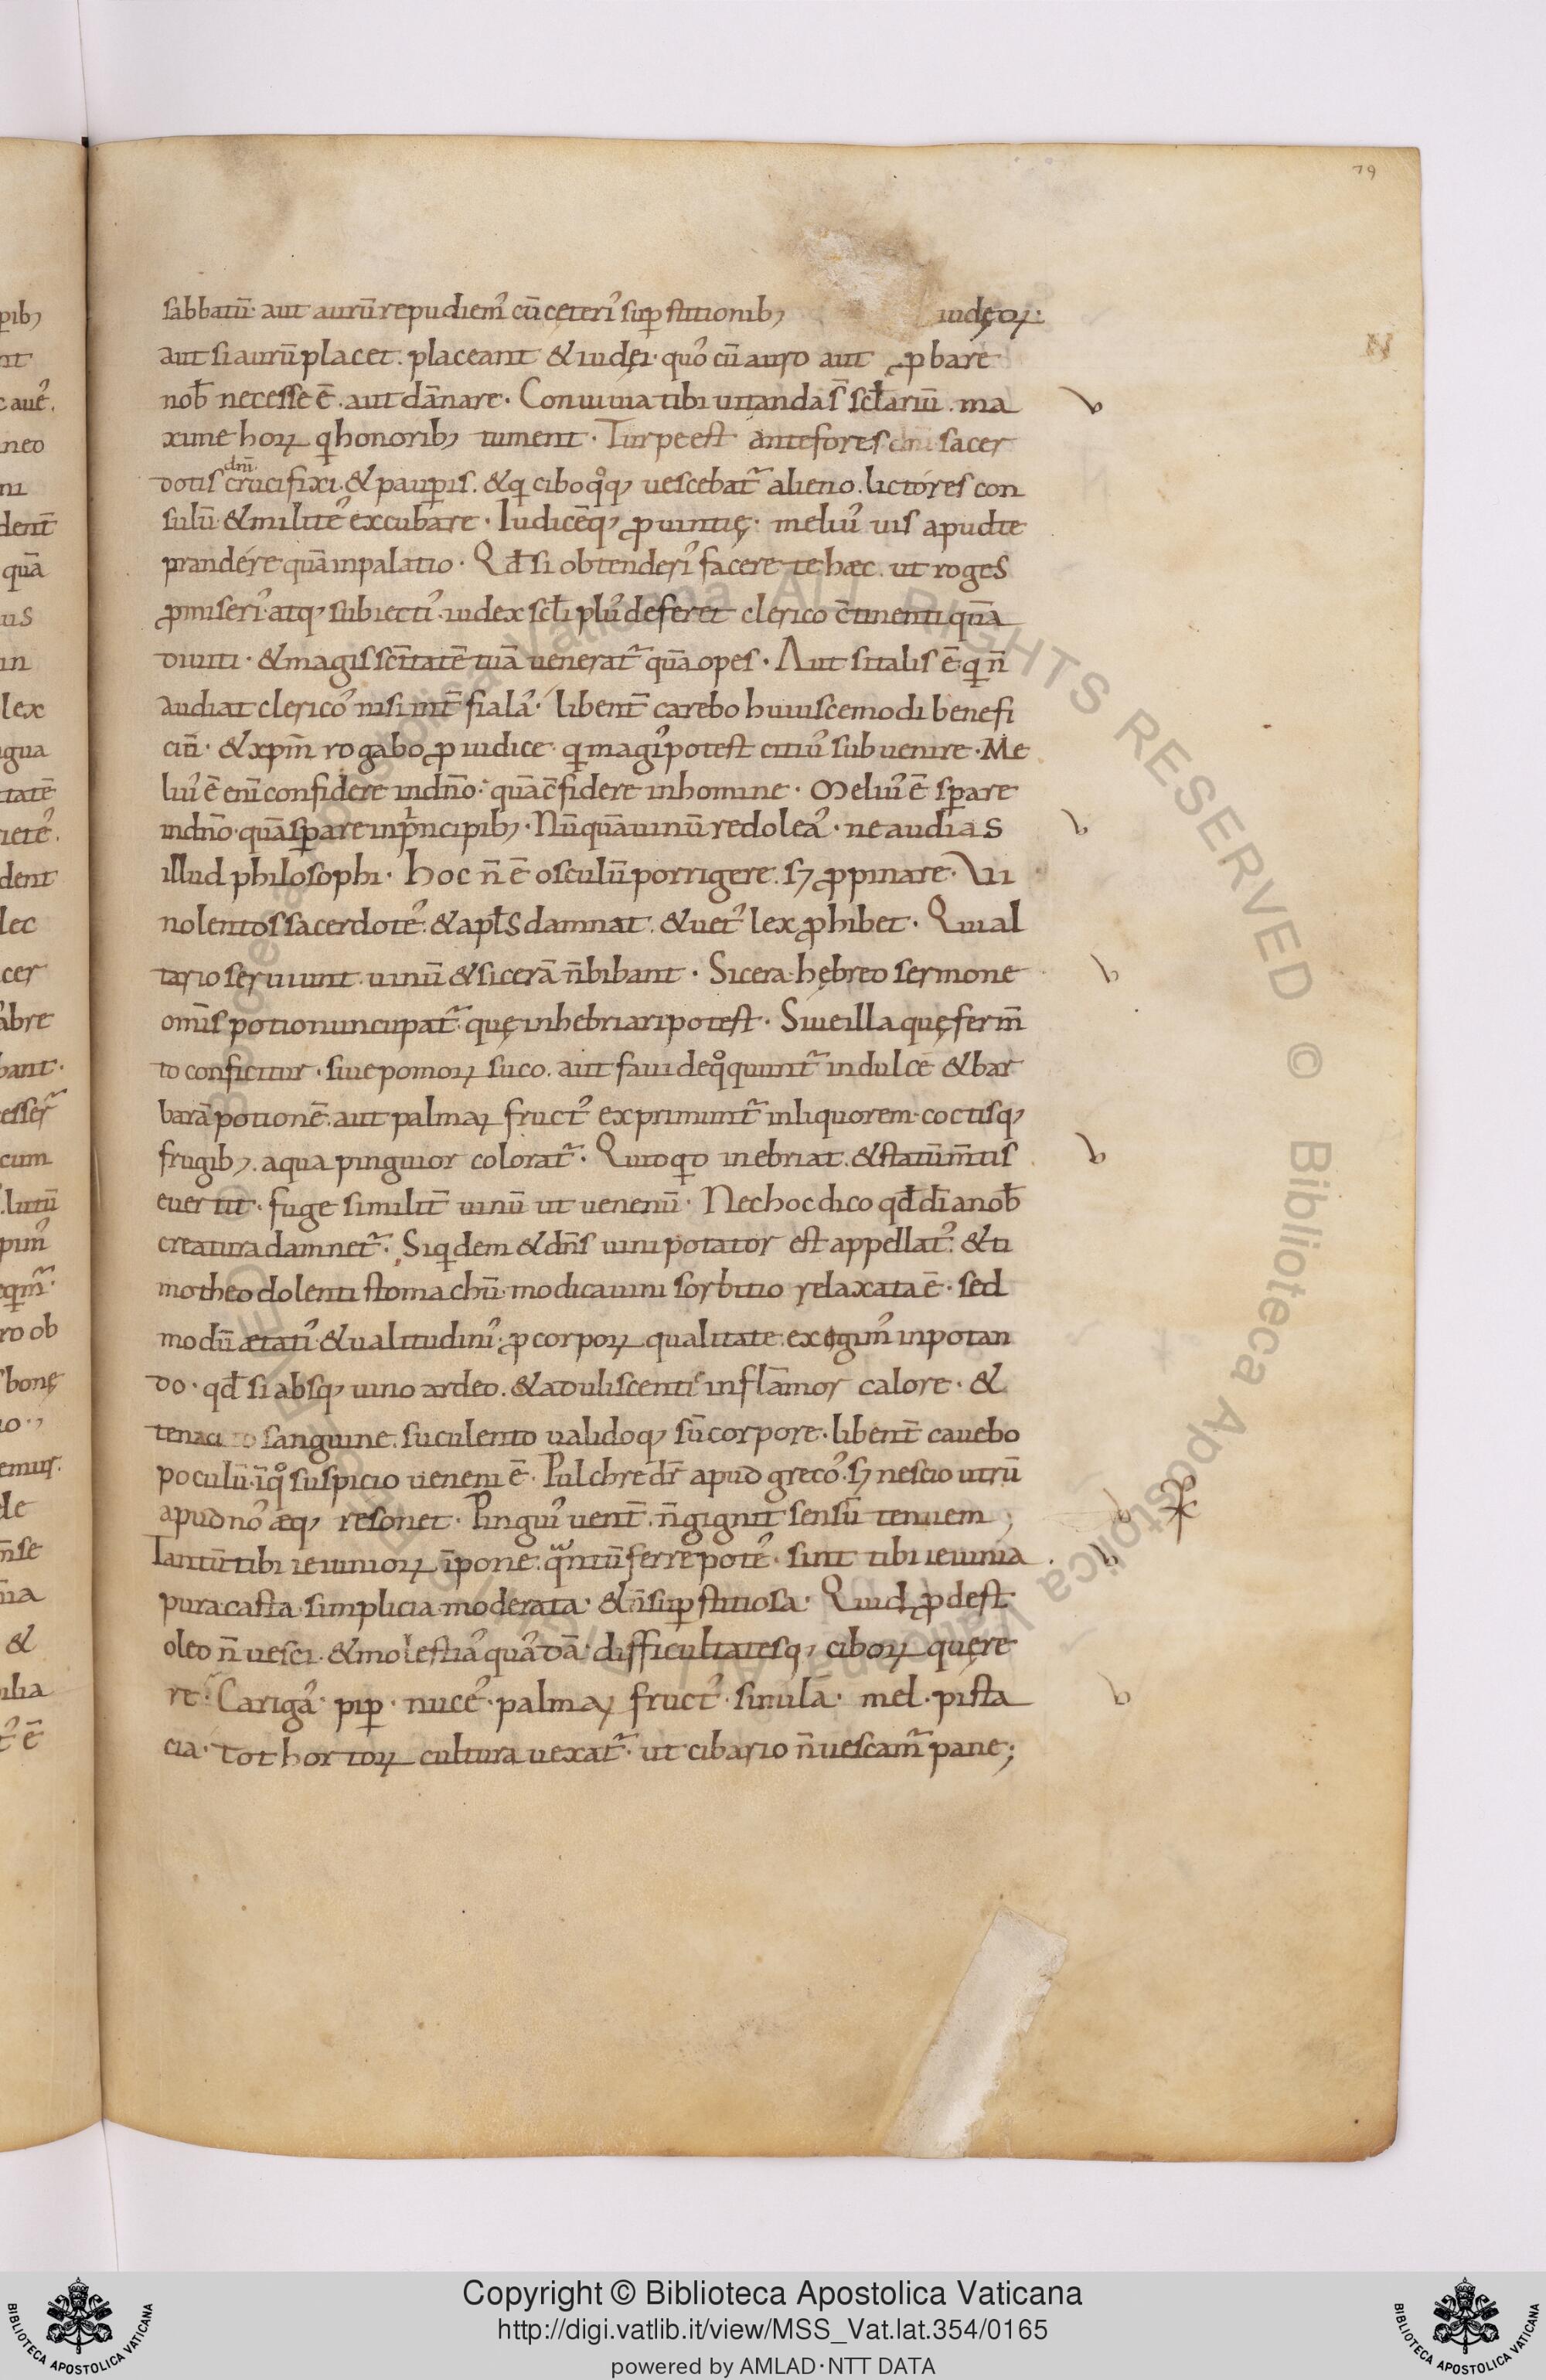 79
sabbatū· aut aurū repudiem᾽ cū cęteri᾽ suꝑstitionib; iudęoꝝ·
aut si aurū placet. placeant & iudęi· quo᾽ cū auro aut ꝓbare
nob̄ necesse ē. aut dānare· Conuiuia tibi uitanda s̄ scl̄ariū. ma
xime hoꝝ q honorib; tument· Turpe est ante fores dn̄i sacer
dn̄i
dotis crucifixi. & pauꝑis. & q cibo qoq; uescebat᷑ alieno. lictóres con
sulū & milite᾽ excubare· Iudicēq; ꝓuintię· meliu᾽ uis apud te
prandére quā in palatio· Qd̄ si obtenderi᾽ facere te hæc. ut roges
ꝓ miseri᾽ atq; subiecti᾽. iudex scl̄i plu᾽ deferet clerico c̄tinenti quā
diuiti· & magis sc̄itatē tuā uenerat᷑ quā opes· Aut si talis ē· q n̄
audiat clerico᾽ nisi int̄ fiala᾽· libent̄ carebo huiuscemodi benefi
ciū· & xpm̄ rogabo ꝓ iudice· q magi᾽ potest citiu᾽ subuenire· Me
liu᾽ ē enī confidere in dn̄o· quā c̄fidere in homine· Meliu᾽ ē sꝑare
in dn̄o· quā sꝑare in pncipib;· Nūquā uinū redolea᾽· ne audias
illud philosophi· hoc n̄ ē osculū porrigere. sꝫ ꝓpinare· Vi
nolentos sacerdote᾽. & apl̄s damnat. & uet᾽ lex ꝓhibet· Qui al
tario seruiunt. uinū & sicerā n̄ bibant· Sicera hębreo sermone
om̄is potio nuncupat᷑· quę inhebriari potest· Siue illa quę ferm̄
to conficitur· siue pomoꝝ suco. aut faui deqoquunt᷑ in dulcē & bar
barā potionē. aut palmaꝝ fruct᾽ exprimunt᷑ in liquorem· coctisq;
frugib;. aqua pinguior colorat᷑· Quidqd inebriat. & statū m̄tis
euertit· fuge similit̄ uinū ut uenenū· Nec hoc dico qd̄ dī a nob̄
creatura damnet᷑· Siqdem & dn̄s uini potator est appellat᾽. & ti
motheo dolenti stomachū· modica uini sorbitio relaxata ē· sed
modū ætati᾽ & ualitudini᾽ ꝓ corpoꝝ qualitate exigim᾽ in potan
do· qd̄ si absq; uino ardeo. & aduliscentie inflāmor calore· &
tenaci sanguine. suculento ualidoq; sū corpore· libent̄ cauebo
poculū· ī qo suspicio ueneni ē· Pulchre dr̄ apud greco᾽. sꝫ nescio utrū
apud no᾽ æq; resonet· Pingui᾽ uent̄. n̄ gignit sensū tenuem;
Tantū tibi ieiunioꝝ īpone. qantū ferre pote᾽· sint tibi ieiunia.
pura casta· simplicia moderata· & n̄ suꝑstitiosa· Quid ꝓdest
oleo n̄ uesci. & molestia᾽ qua᾽dā· difficultatesq; ciboꝝ quere
re· Cariga᾽· piꝑ· nuce᾽· palmaꝝ fruct᾽· similā· mel· pista
cia· tot hortoꝝ cultura uexat᷑· ut cibario n̄ uescam᷑ pane;
© Biblioteca Apostolica Vaticana ALL RIGHTS RESERVED
BIBLIOTECA APOSTOLICA VATICANA
Copyright © Biblioteca Apostolica Vaticana
http://digi.vatlib.it/view/MSS_Vat.lat.354/0165
powered by AMLAD·NTT DATA
BIBLIOTECA APOSTOLICA VATICANA